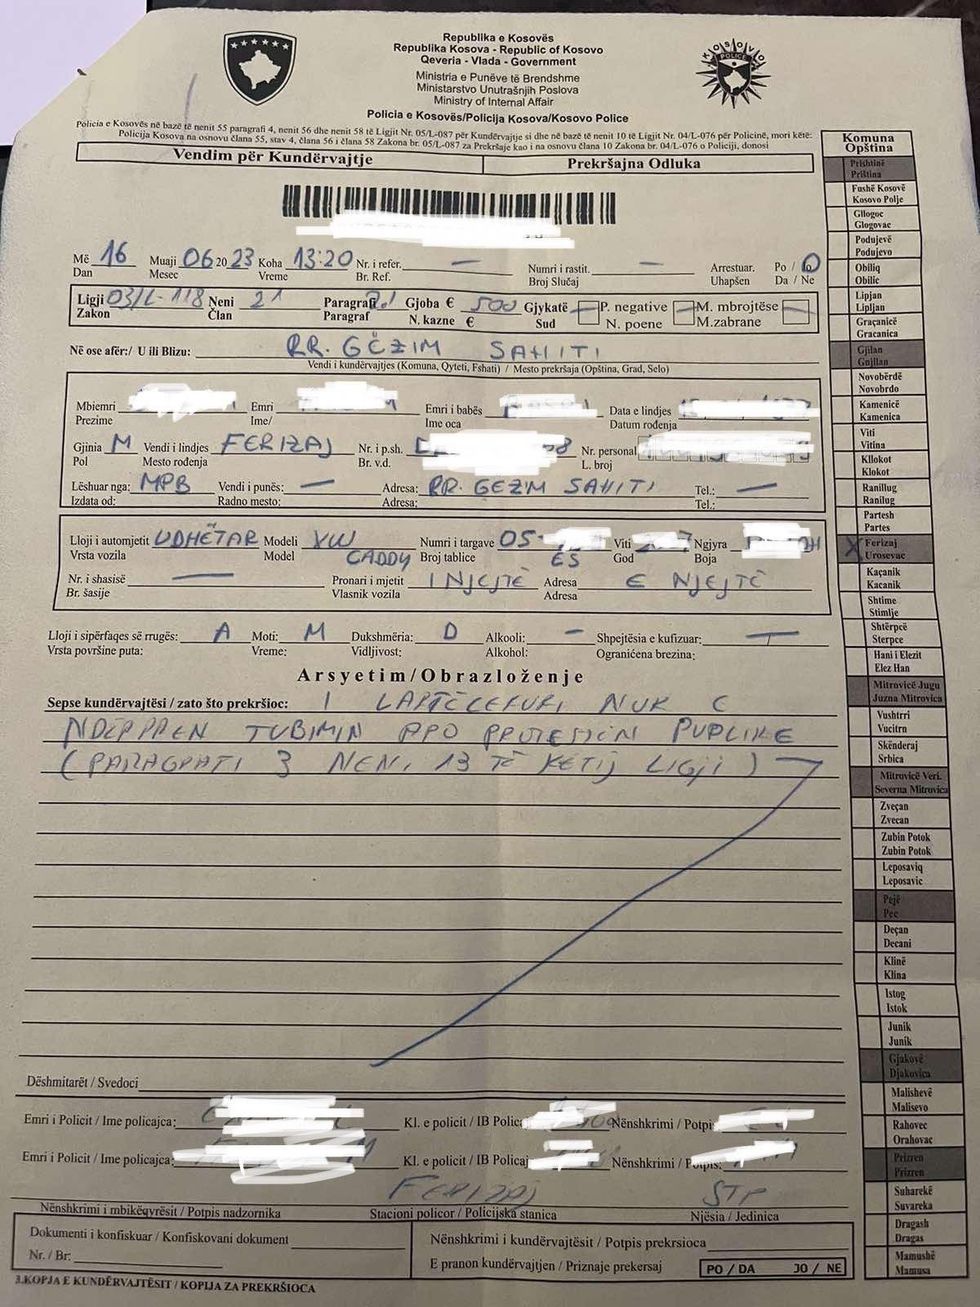 Republika e Kosovës
Republika Kosova - Republic of Kosovo
Qeveria - Vlada - Government
Ministria e Punëve të Brendshme
Ministarstvo Unutrašnjih Poslova
Ministry of Internal Affair
Policia e Kosovës/Policija Kosova/Kosovo Police
KOSOVO
POLICE
Policia e Kosovës në bazë të nenit 55 paragrafi 4, nenit 56 dhe nenit 58 të Ligjit Nr. 05/L-087 për Kundërvajtje si dhe në bazë të nenit 10 të Ligjit Nr. 04/L-076 për Policinë, mori këtë:
Policija Kosova na osnovu člana 55, stav 4, člana 56 i člana 58 Zakona br. 05/L-087 za Prekršaje kao i na osnovu člana 10 Zakona br. 04/L-076 o Policiji, donosi
Vendim për Kundërvajtje Prekršajna Odluka
Më 16 Muaji 06 2023 Koha 13:20 Nr. i refer. — Numri i rastit. — Arrestuar. Po / Jo
Dan Mesec Vreme Br. Ref. Broj Slučaj Uhapšen Da / Ne
Ligji 03/L-118 Neni 21 Paragrafi 2.1 Gjoba € 500 Gjykatë P. negative M. mbrojtëse
Zakon Član Paragraf N. kazne € Sud N. poene M.zabrane
Në ose afër:/ U ili Blizu: RR. GËZIM SAHITI
Vendi i kundërvajtjes (Komuna, Qyteti, Fshati) / Mesto prekršaja (Opština, Grad, Selo)
Mbiemri Emri Emri i babës Data e lindjes
Prezime Ime/ Ime oca Datum rođenja
Gjinia M Vendi i lindjes FERIZAJ Nr. i p.sh. Nr. personal
Pol Mesto rođenja Br. v.d. L. broj
Lëshuar nga: MPB Vendi i punës: — Adresa: RR. GEZIM SAHITI Tel.: —
Izdata od: Radno mesto: Adresa: Tel.:
Lloji i automjetit UDHËTAR Modeli VW Numri i targave 05- Viti Ngjyra
Vrsta vozila Model CADDY Broj tablice ES God Boja
Nr. i shasisë — Pronari i mjetit I NJEJTË Adresa E NJEJTË
Br. šasije Vlasnik vozila Adresa
Lloji i sipërfaqes së rrugës: A Moti: M Dukshmëria: D Alkooli: — Shpejtësia e kufizuar: —
Vrsta površine puta: Vreme: Vidljivost: Alkohol: Ograničena brezina:
Arsyetim/Obrazloženje
Sepse kundërvajtësi / zato što prekršioc: I LARTËCEKURI NUK E
NDËRPREN TUBIMIN APO PROTESTËN PUPLIKE
(PARAGRAFI 3 NENI 13 TË KETIJ LIGJI)
Dëshmitarët / Svedoci
Emri i Policit / Ime policajca: Kl. e policit / IB Policaj Nënshkrimi / Potpis
Emri i Policit / Ime policajca: Kl. e policit / IB Policaj Nënshkrimi / Potpis:
FERIZAJ STP
Nënshkrimi i mbikëqyrësit / Potpis nadzornika Stacioni policor / Policijska stanica Njësia / Jedinica
Dokumenti i konfiskuar / Konfiskovani dokument
Nr. / Br:
Nënshkrimi i kundërvajtësit / Potpis prekrsioca
E pranon kundërvajtjen / Priznaje prekersaj PO / DA JO / NE
3.KOPJA E KUNDËRVAJTËSIT / KOPIJA ZA PREKRŠIOCA
Komuna
Opština
Prishtinë
Priština
Fushë Kosovë
Kosovo Polje
Gllogoc
Glogovac
Podujevë
Podujevo
Obiliq
Obilic
Lipjan
Lipljan
Graçanicë
Gracanica
Gjilan
Gnjilan
Novobërdë
Novobrdo
Kamenicë
Kamenica
Viti
Vitina
Kllokot
Klokot
Ranillug
Ranilug
Partesh
Partes
X Ferizaj
Urosevac
Kaçanik
Kacanik
Shtime
Stimlje
Shtërpcë
Sterpce
Hani i Elezit
Elez Han
Mitrovicë Jugu
Juzna Mitrovica
Vushtrri
Vucitrn
Skënderaj
Srbica
Mitrovicë Veri.
Severna Mitrovica
Zveçan
Zvecan
Zubin Potok
Zubin Potok
Leposaviq
Leposavic
Pejë
Pec
Deçan
Decani
Klinë
Klina
Istog
Istok
Junik
Junik
Gjakovë
Djakovica
Malishevë
Malisevo
Rahovec
Orahovac
Prizren
Prizren
Suharekë
Suvareka
Dragash
Dragas
Mamushë
Mamusa